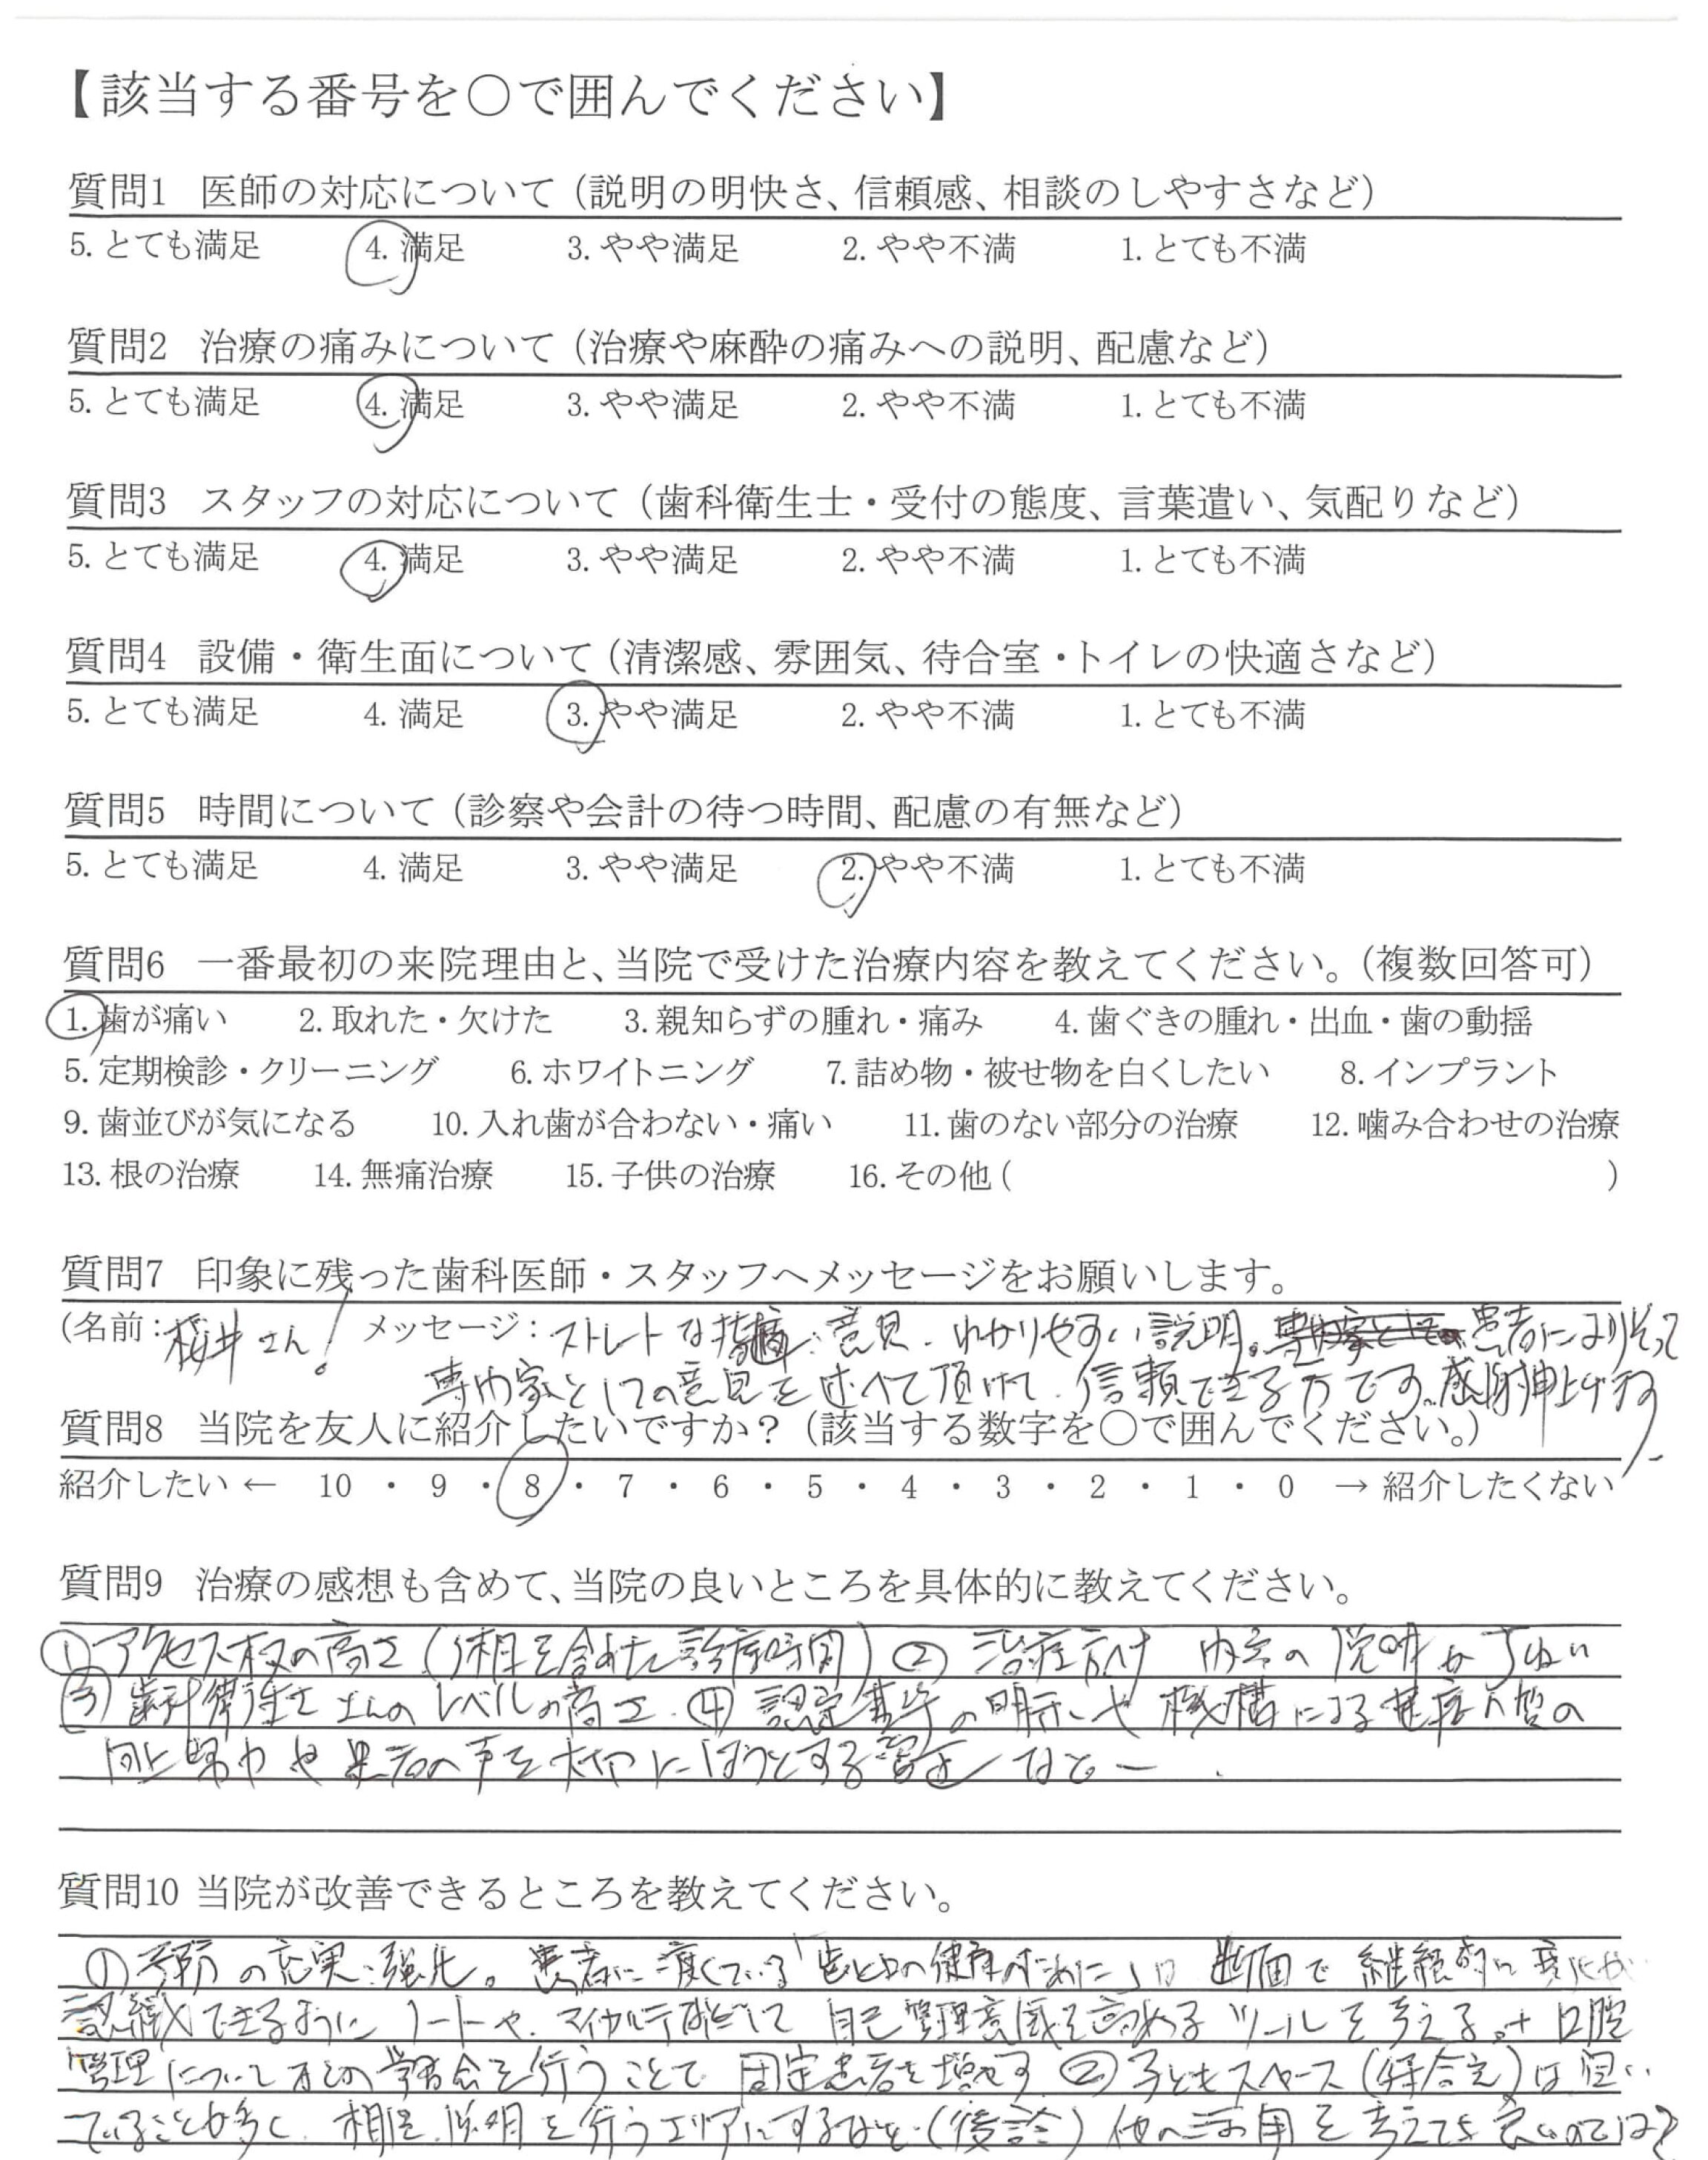 【該当する番号を〇で囲んでください】
質問1 医師の対応について（説明の明快さ、信頼感、相談のしやすさなど）
5. とても満足 4. 満足 3. やや満足 2. やや不満 1. とても不満
質問2 治療の痛みについて（治療や麻酔の痛みへの説明、配慮など）
5. とても満足 4. 満足 3. やや満足 2. やや不満 1. とても不満
質問3 スタッフの対応について（歯科衛生士・受付の態度、言葉遣い、気配りなど）
5. とても満足 4. 満足 3. やや満足 2. やや不満 1. とても不満
質問4 設備・衛生面について（清潔感、雰囲気、待合室・トイレの快適さなど）
5. とても満足 4. 満足 3. やや満足 2. やや不満 1. とても不満
質問5 時間について（診察や会計の待つ時間、配慮の有無など）
5. とても満足 4. 満足 3. やや満足 2. やや不満 1. とても不満
質問6 一番最初の来院理由と、当院で受けた治療内容を教えてください。（複数回答可）
1. 歯が痛い 2. 取れた・欠けた 3. 親知らずの腫れ・痛み 4. 歯ぐきの腫れ・出血・歯の動揺
5. 定期検診・クリーニング 6. ホワイトニング 7. 詰め物・被せ物を白くしたい 8. インプラント
9. 歯並びが気になる 10. 入れ歯が合わない・痛い 11. 歯のない部分の治療 12. 噛み合わせの治療
13. 根の治療 14. 無痛治療 15. 子供の治療 16. その他（ ）
質問7 印象に残った歯科医師・スタッフへメッセージをお願いします。
（名前：桜井さん！ メッセージ：ストレートな指摘、意見、わかりやすい説明。患者によりそって
専門家としての意見を述べて頂けて、信頼できる方です。感謝申上げます
質問8 当院を友人に紹介したいですか？（該当する数字を〇で囲んでください。）
紹介したい ← 10 ・ 9 ・ 8 ・ 7 ・ 6 ・ 5 ・ 4 ・ 3 ・ 2 ・ 1 ・ 0 → 紹介したくない
質問9 治療の感想も含めて、当院の良いところを具体的に教えてください。
① アクセス の高さ（ を含めた診療時間）② 治療 内容の説明がていねい
③ 歯科衛生士さんのレベルの高さ ④ 認定基準の明示や機構による
向上努力や患者の声を大切にしようとする など
質問10 当院が改善できるところを教えてください。
① 予防の充実・強化。患者に 「歯と の健康のために」は 断面で継続的に変化が
認識できるようにノートや、マイカルテ 自己管理意識を高めるツールを考える。＋口腔
管理について 学習会を行うことで 固定患者を増やす ② 子どもスペース（待合室）は空い
ていることが多く、相談、説明を行うエリアにするなど、 他の活用を考えても良いのでは？